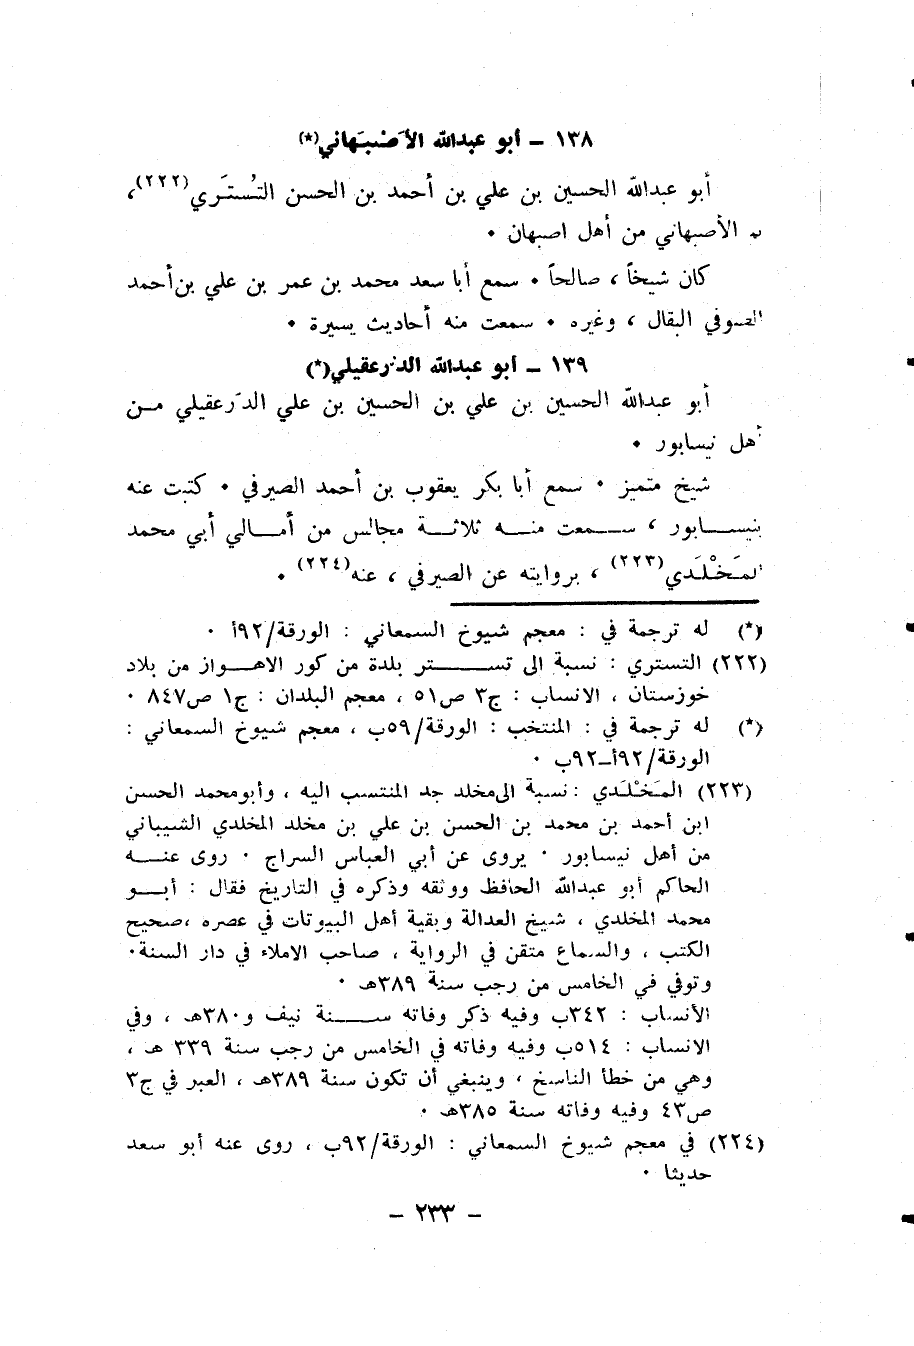 ١٣٨ – أبو عبدالله الأصْبَهاني(*)
أبو عبدالله الحسين بن علي بن أحمد بن الحسن التُستَري(٢٢٢)،
الأصبهاني من أهل اصبهان ٠
كان شيخاً ، صالحاً ٠ سمع أبا سعد محمد بن عمر بن علي بن أحمد
الصوفي البقال ، وغيره ٠ سمعت منه أحاديث يسيرة ٠
١٣٩ – أبو عبدالله الدرعقيلي(*)
أبو عبدالله الحسين بن علي بن الحسين بن علي الدَرعقيلي مـن
أهل نيسابور ٠
شيخ متميز ٠ سمع أبا بكر يعقوب بن أحمد الصيرفي ٠ كتبت عنه
بنيســابور ، ســمعت منــه ثلاثــة مجالس من أمــالي أبي محمد
المَخْلَدي(٢٢٣) ، بروايته عن الصيرفي ، عنه(٢٢٤) ٠
(*) له ترجمة في : معجم شيوخ السمعاني : الورقة/٩٢أ ٠
(٢٢٢) التستري : نسبة الى تستــر بلدة من كور الاهــواز من بلاد
خوزستان ، الانساب : ج٣ ص٥١ ، معجم البلدان : ج١ ص٨٤٧ ٠
(*) له ترجمة في : المنتخب : الورقة/٥٩ب ، معجم شيوخ السمعاني :
الورقة/٩٢أ–٩٢ب ٠
(٢٢٣) المَخْلَدي : نسبة الى مخلد جد المنتسب اليه ، وأبو محمد الحسن
ابن أحمد بن محمد بن الحسن بن علي بن مخلد المخلدي الشيباني
من أهل نيسابور ٠ يروى عن أبي العباس السراج ٠ روى عنــه
الحاكم أبو عبدالله الحافظ ووثقه وذكره في التاريخ فقال : أبــو
محمد المخلدي ، شيخ العدالة وبقية أهل البيوتات في عصره ،صحيح
الكتب ، والسماع متقن في الرواية ، صاحب الاملاء في دار السنة٠
وتوفي في الخامس من رجب سنة ٣٨٩هـ ٠
الأنساب : ٣٤٢ب وفيه ذكر وفاته ســنة نيف و٣٨٠هـ ، وفي
الانساب : ٥١٤ب وفيه وفاته في الخامس من رجب سنة ٣٣٩ هـ ،
وهي من خطأ الناسخ ، وينبغي أن تكون سنة ٣٨٩هـ ، العبر في ج٣
ص٤٣ وفيه وفاته سنة ٣٨٥هـ ٠
(٢٢٤) في معجم شيوخ السمعاني : الورقة/٩٢ب ، روى عنه أبو سعد
حديثا ٠
– ٢٣٣ –